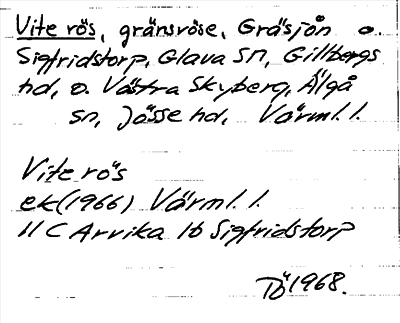 Vite rös, gränsröse, Gräsjön o.
Sigfridstorp, Glava sn, Gillbergs
hd, o. Västra Skyberg, Älgå
sn, Jösse hd, Värml. l.
Vite rös
ek (1966) Värml. l.
11 C Arvika 1b Sigfridstorp
Tö 1968.